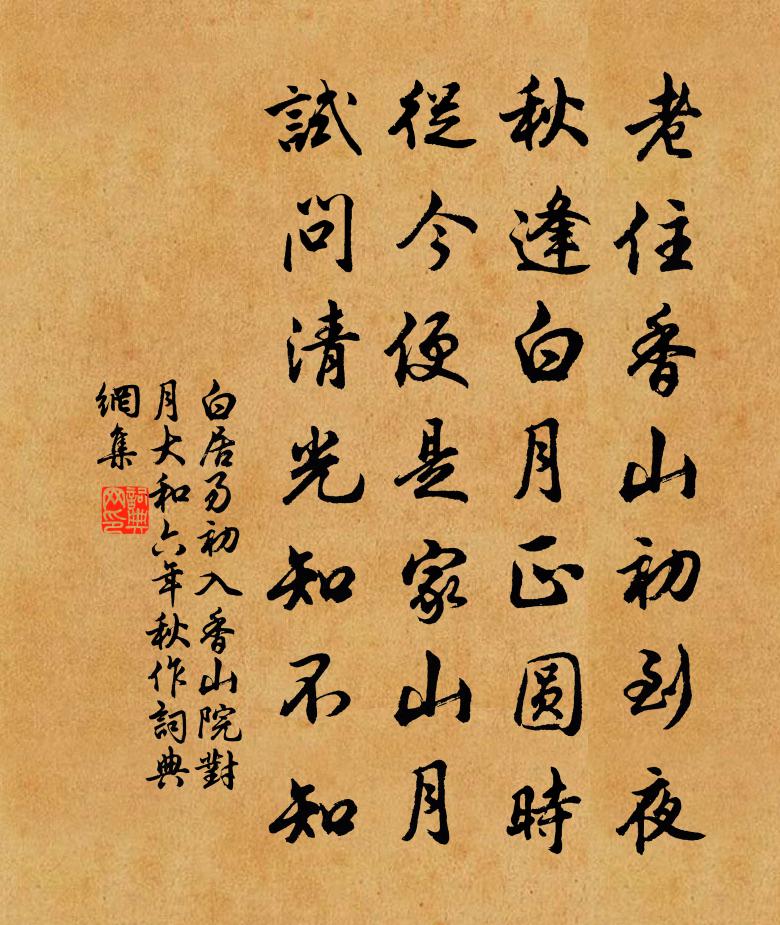 老住香山初到夜
秋逢白月正圓時
從今便是家山月
試問清光知不知
白居易初入香山院對
月大和六年秋作詞典
網集
詞典
网印